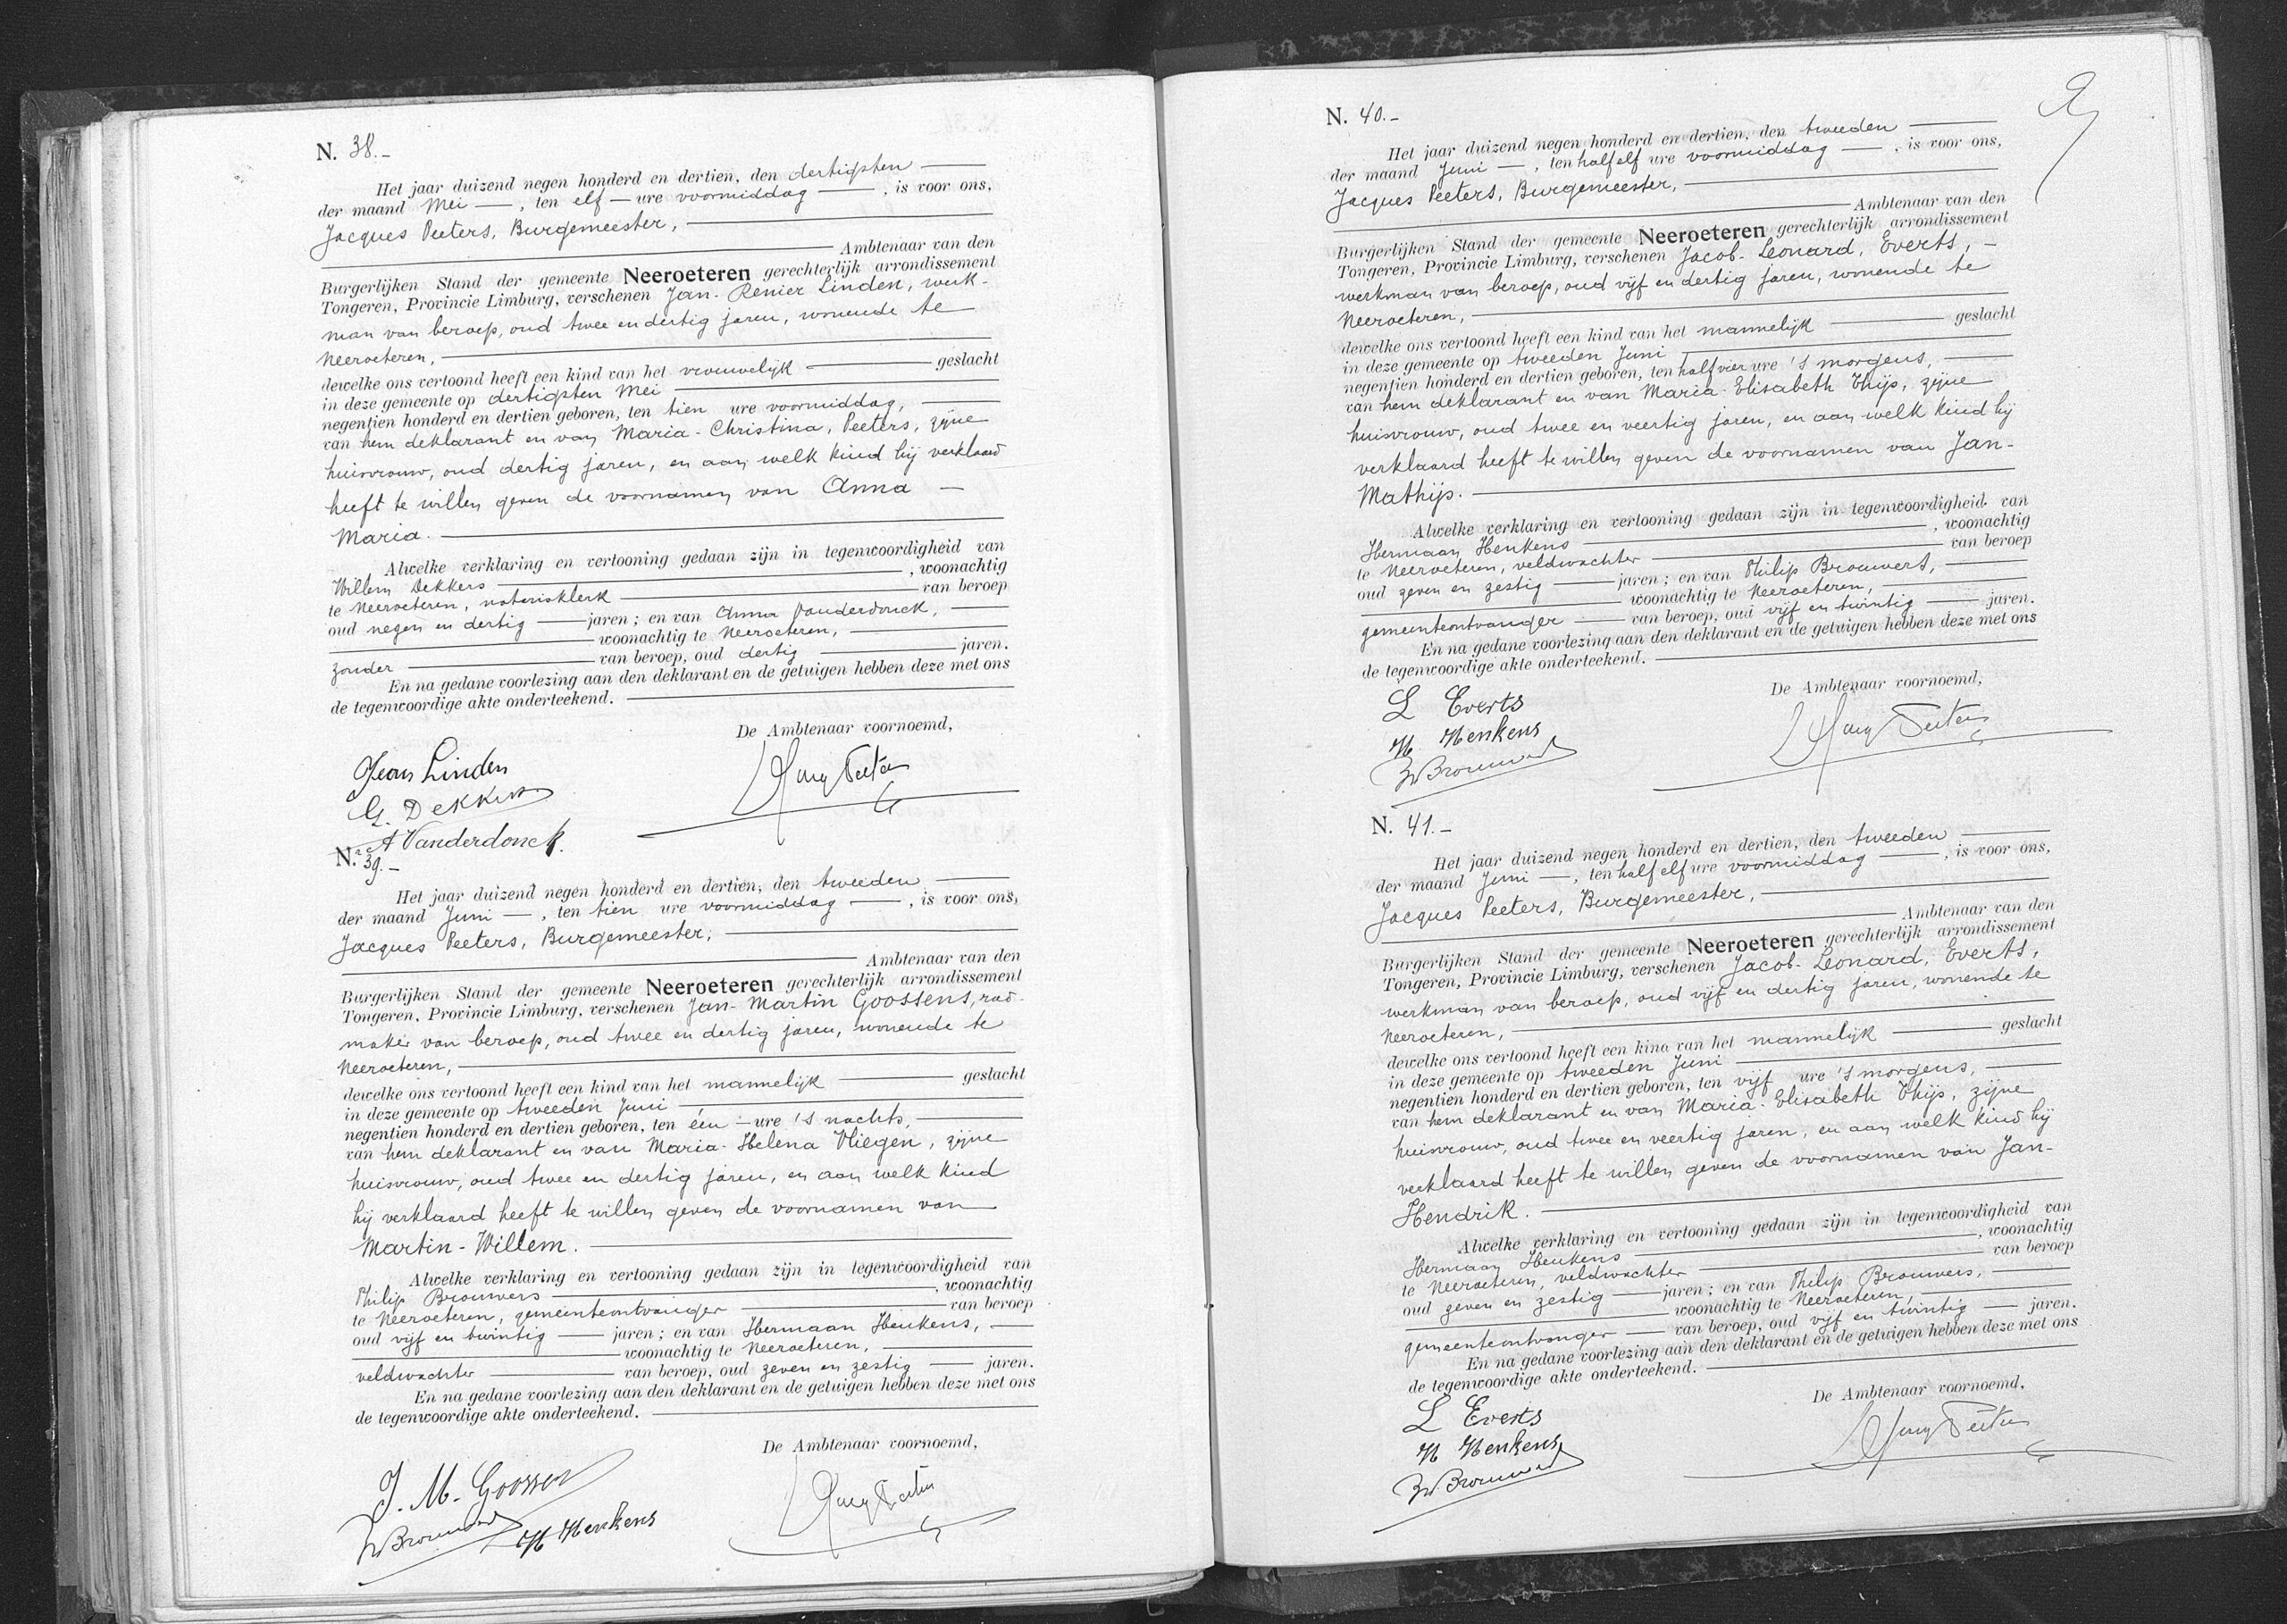 N. 38.-
Het jaar duizend negen honderd en dertien, den dertigsten
der maand Mei, ten elf ure voormiddag, is voor ons,
Jacques Peeters, Burgemeester,
Ambtenaar van den
Burgerlijken Stand der gemeente Neeroeteren gerechterlijk arrondissement
Tongeren, Provincie Limburg, verschenen Jan-Renier Linden, werk-
man van beroep, oud twee en dertig jaren, wonende te
Neeroeteren,
dewelke ons vertoond heeft een kind van het vrouwelijk geslacht
in deze gemeente op dertigsten Mei
negentien honderd en dertien geboren, ten tien ure voormiddag,
van hem deklarant en van Maria-Christina, Peeters, zijne
huisvrouw, oud dertig jaren, en aan welk kind hij verklaard
heeft te willen geven de voornamen van Anna
Maria.
Alwelke verklaring en vertooning gedaan zijn in tegenwoordigheid van
Willem Dekkers, woonachtig
te Neeroeteren, notarisklerk van beroep
oud negen en dertig jaren; en van Anna Vanderdonck,
woonachtig te Neeroeteren,
zonder van beroep, oud dertig jaren.
En na gedane voorlezing aan den deklarant en de getuigen hebben deze met ons
de tegenwoordige akte onderteekend.
De Ambtenaar voornoemd,
Jean Linden
G. Dekkers
A Vanderdonck.
N. 39.-
Het jaar duizend negen honderd en dertien, den tweeden
der maand Juni, ten tien ure voormiddag, is voor ons,
Jacques Peeters, Burgemeester,
Ambtenaar van den
Burgerlijken Stand der gemeente Neeroeteren gerechterlijk arrondissement
Tongeren, Provincie Limburg, verschenen Jan-Martin Goossens, rad-
maker van beroep, oud twee en dertig jaren, wonende te
Neeroeteren,
dewelke ons vertoond heeft een kind van het mannelijk geslacht
in deze gemeente op tweeden Juni
negentien honderd en dertien geboren, ten één ure 's nachts,
van hem deklarant en van Maria-Helena Vliegen, zijne
huisvrouw, oud twee en dertig jaren, en aan welk kind
hij verklaard heeft te willen geven de voornamen van
Martin-Willem.
Alwelke verklaring en vertooning gedaan zijn in tegenwoordigheid van
Philip Brouwers, woonachtig
te Neeroeteren, gemeenteontvanger van beroep
oud vijf en twintig jaren; en van Hermaan Henkens,
woonachtig te Neeroeteren,
veldwachter van beroep, oud zeven en zestig jaren.
En na gedane voorlezing aan den deklarant en de getuigen hebben deze met ons
de tegenwoordige akte onderteekend.
De Ambtenaar voornoemd,
J. M. Goossens
H Henkens
N. 40.-
Het jaar duizend negen honderd en dertien, den tweeden
der maand Juni, ten half elf ure voormiddag, is voor ons,
Jacques Peeters, Burgemeester,
Ambtenaar van den
Burgerlijken Stand der gemeente Neeroeteren gerechterlijk arrondissement
Tongeren, Provincie Limburg, verschenen Jacob-Leonard, Everts,
werkman van beroep, oud vijf en dertig jaren, wonende te
Neeroeteren,
dewelke ons vertoond heeft een kind van het mannelijk geslacht
in deze gemeente op tweeden Juni
negentien honderd en dertien geboren, ten half vier ure 's morgens,
van hem deklarant en van Maria-Elisabeth Thijs, zijne
huisvrouw, oud twee en veertig jaren, en aan welk kind hij
verklaard heeft te willen geven de voornamen van Jan-
Mathijs.
Alwelke verklaring en vertooning gedaan zijn in tegenwoordigheid van
Hermaan Henkens, woonachtig
te Neeroeteren, veldwachter van beroep
oud zeven en zestig jaren; en van Philip Brouwers,
woonachtig te Neeroeteren,
gemeenteontvanger van beroep, oud vijf en twintig jaren.
En na gedane voorlezing aan den deklarant en de getuigen hebben deze met ons
de tegenwoordige akte onderteekend.
De Ambtenaar voornoemd,
L Everts
H Henkens
N. 41.-
Het jaar duizend negen honderd en dertien, den tweeden
der maand Juni, ten half elf ure voormiddag, is voor ons,
Jacques Peeters, Burgemeester,
Ambtenaar van den
Burgerlijken Stand der gemeente Neeroeteren gerechterlijk arrondissement
Tongeren, Provincie Limburg, verschenen Jacob-Leonard, Everts,
werkman van beroep, oud vijf en dertig jaren, wonende te
Neeroeteren,
dewelke ons vertoond heeft een kind van het mannelijk geslacht
in deze gemeente op tweeden Juni
negentien honderd en dertien geboren, ten vijf ure 's morgens,
van hem deklarant en van Maria-Elisabeth Thijs, zijne
huisvrouw, oud twee en veertig jaren, en aan welk kind hij
verklaard heeft te willen geven de voornamen van Jan-
Hendrik.
Alwelke verklaring en vertooning gedaan zijn in tegenwoordigheid van
Hermaan Henkens, woonachtig
te Neeroeteren, veldwachter van beroep
oud zeven en zestig jaren; en van Philip Brouwers,
woonachtig te Neeroeteren,
gemeenteontvanger van beroep, oud vijf en twintig jaren.
En na gedane voorlezing aan den deklarant en de getuigen hebben deze met ons
de tegenwoordige akte onderteekend.
De Ambtenaar voornoemd,
L Everts
H Henkens